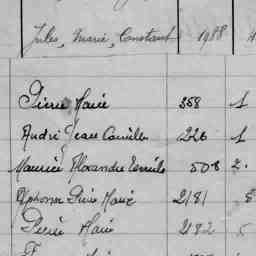 Jules, Marie, Constant 1988
Pierre Marie 358 1
André Jean Camille 226 1
Maurice Alexandre Emile 508 2.
Alphonse Pierre Marie 2181
Pierre Marie 2182 5